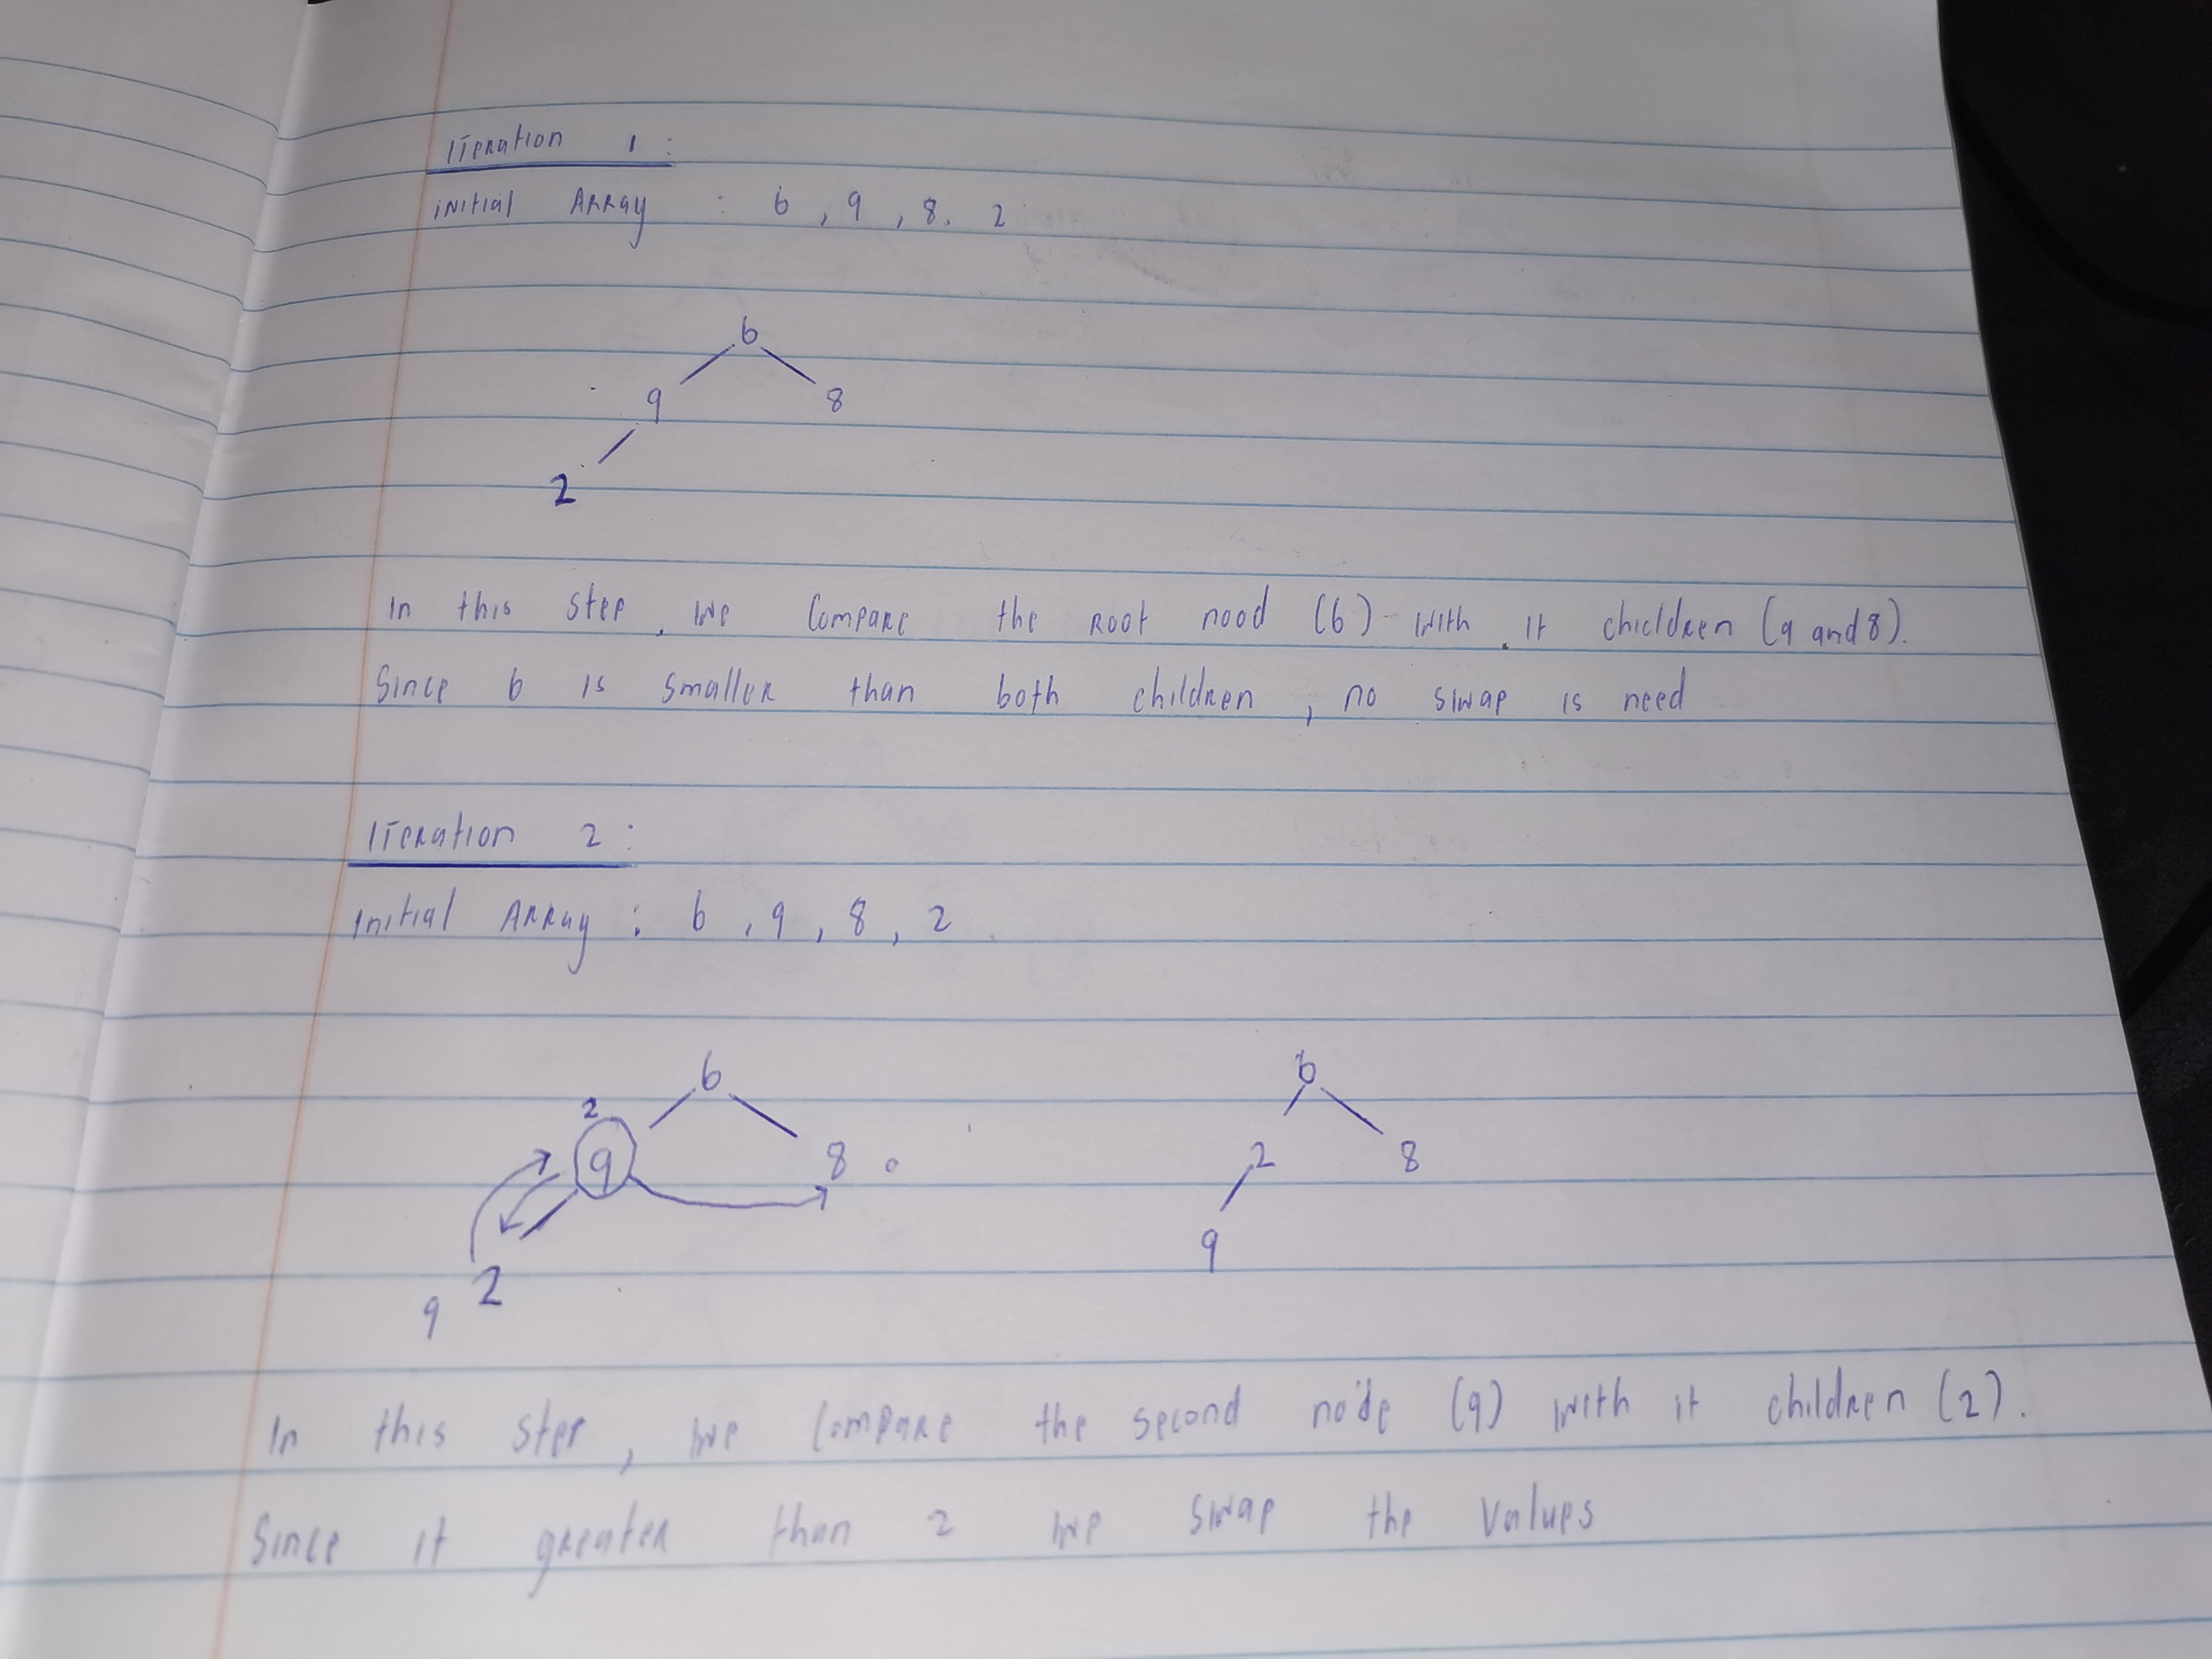 Iteration 1 :
Initial Array : 6 , 9 , 8. 2
6
9 8
2
In this step, we compare the root nood (6) with it chicldren (9 and 8).
Since 6 is smaller than both children , no swap is need
Iteration 2 :
Initial Array : 6 , 9 , 8 , 2
6 6
2
9 8 2 8
2 9
9
In this step , we compare the second node (9) with it children (2).
Since it greater than 2 we swap the values